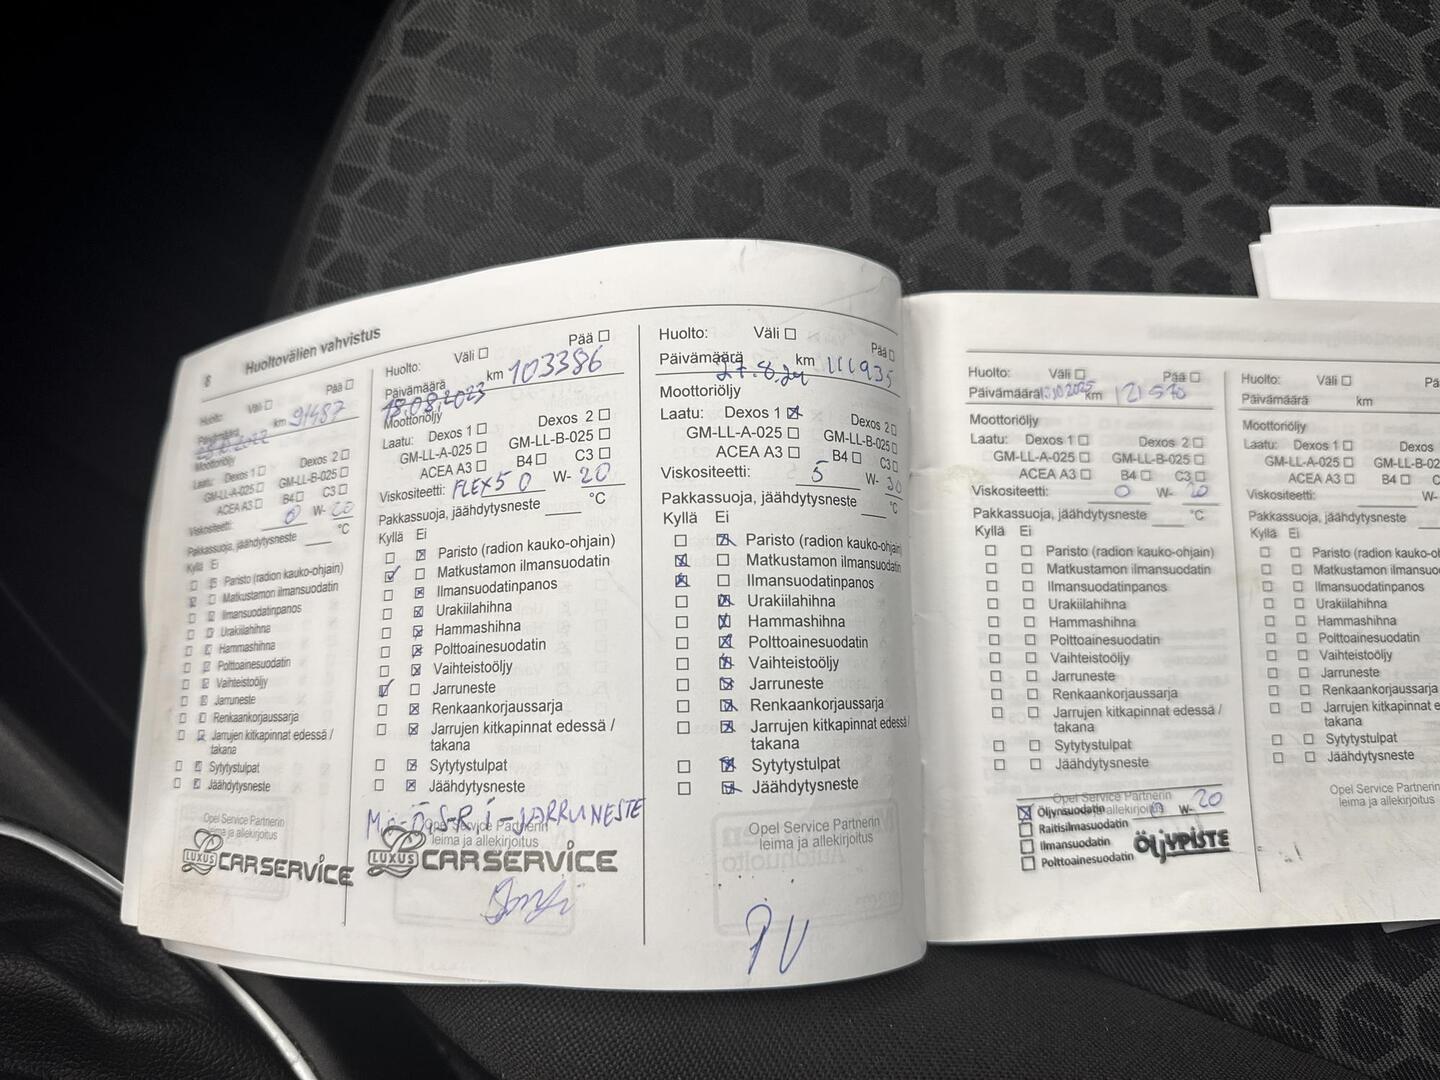 8 Huoltovälien vahvistus
Huolto: Väli ☐ Pää ☐
Päivämäärä km 91487
Moottoriöljy
Laatu: Dexos 1 ☐ Dexos 2 ☐
GM-LL-A-025 ☐ GM-LL-B-025 ☐
ACEA A3 ☐ B4 ☐ C3 ☐
Viskositeetti: 0 W- 20
Pakkassuoja, jäähdytysneste ____ °C
Kyllä Ei
☐ ☒ Paristo (radion kauko-ohjain)
☒ ☐ Matkustamon ilmansuodatin
☐ ☒ Ilmansuodatinpanos
☐ ☒ Urakiilahihna
☐ ☒ Hammashihna
☐ ☒ Polttoainesuodatin
☐ ☒ Vaihteistoöljy
☐ ☒ Jarruneste
☐ ☐ Renkaankorjaussarja
☐ ☒ Jarrujen kitkapinnat edessä /
takana
☐ ☒ Sytytystulpat
☐ ☒ Jäähdytysneste
Opel Service Partnerin
leima ja allekirjoitus
LUXUS CARSERVICE
Huolto: Väli ☐ Pää ☐
Päivämäärä 18.08.2023 km 103386
Moottoriöljy
Laatu: Dexos 1 ☐ Dexos 2 ☐
GM-LL-A-025 ☐ GM-LL-B-025 ☐
ACEA A3 ☐ B4 ☐ C3 ☐
Viskositeetti: FLEX5 0 W- 20
Pakkassuoja, jäähdytysneste ____ °C
Kyllä Ei
☐ ☒ Paristo (radion kauko-ohjain)
☑ ☐ Matkustamon ilmansuodatin
☐ ☒ Ilmansuodatinpanos
☐ ☒ Urakiilahihna
☐ ☒ Hammashihna
☐ ☒ Polttoainesuodatin
☐ ☒ Vaihteistoöljy
☑ ☐ Jarruneste
☐ ☒ Renkaankorjaussarja
☐ ☒ Jarrujen kitkapinnat edessä /
takana
☐ ☒ Sytytystulpat
☐ ☒ Jäähdytysneste
JARRUNESTE
Opel Service Partnerin
leima ja allekirjoitus
LUXUS CARSERVICE
Huolto: Väli ☐ Pää ☐
Päivämäärä 27.8.24 km 111935
Moottoriöljy
Laatu: Dexos 1 ☒ Dexos 2 ☐
GM-LL-A-025 ☐ GM-LL-B-025 ☐
ACEA A3 ☐ B4 ☐ C3 ☐
Viskositeetti: 5 W- 30
Pakkassuoja, jäähdytysneste ____ °C
Kyllä Ei
☐ ☒ Paristo (radion kauko-ohjain)
☒ ☐ Matkustamon ilmansuodatin
☒ ☐ Ilmansuodatinpanos
☐ ☒ Urakiilahihna
☐ ☒ Hammashihna
☐ ☒ Polttoainesuodatin
☐ ☒ Vaihteistoöljy
☐ ☒ Jarruneste
☐ ☒ Renkaankorjaussarja
☐ ☒ Jarrujen kitkapinnat edessä /
takana
☐ ☒ Sytytystulpat
☐ ☒ Jäähdytysneste
Opel Service Partnerin
leima ja allekirjoitus
Huolto: Väli ☐ Pää ☐
Päivämäärä km 121570
Moottoriöljy
Laatu: Dexos 1 ☐ Dexos 2 ☐
GM-LL-A-025 ☐ GM-LL-B-025 ☐
ACEA A3 ☐ B4 ☐ C3 ☐
Viskositeetti: 0 W- 20
Pakkassuoja, jäähdytysneste ____ °C
Kyllä Ei
☐ ☐ Paristo (radion kauko-ohjain)
☐ ☐ Matkustamon ilmansuodatin
☐ ☐ Ilmansuodatinpanos
☐ ☐ Urakiilahihna
☐ ☐ Hammashihna
☐ ☐ Polttoainesuodatin
☐ ☐ Vaihteistoöljy
☐ ☐ Jarruneste
☐ ☐ Renkaankorjaussarja
☐ ☐ Jarrujen kitkapinnat edessä /
takana
☐ ☐ Sytytystulpat
☐ ☐ Jäähdytysneste
Opel Service Partnerin
leima ja allekirjoitus
☒ Öljynsuodatin W- 20
☐ Raitisilmasuodatin
☐ Ilmansuodatin
☐ Polttoainesuodatin
ÖLJYPISTE
Huolto: Väli ☐
Päivämäärä km
Moottoriöljy
Laatu: Dexos 1 ☐ Dexos
GM-LL-A-025 ☐
ACEA A3 ☐ B4 ☐
Viskositeetti: W-
Pakkassuoja, jäähdytysneste
Kyllä Ei
☐ ☐ Paristo (radion
☐ ☐ Matkustamon
☐ ☐ Ilmansuodatinpanos
☐ ☐ Urakiilahihna
☐ ☐ Hammashihna
☐ ☐ Polttoainesuodatin
☐ ☐ Vaihteistoöljy
☐ ☐ Jarruneste
☐ ☐ Renkaankorjaussarja
☐ ☐ Jarrujen kitkapinnat
takana
☐ ☐ Sytytystulpat
☐ ☐ Jäähdytysneste
Opel Service Partnerin
leima ja allekirjoitus